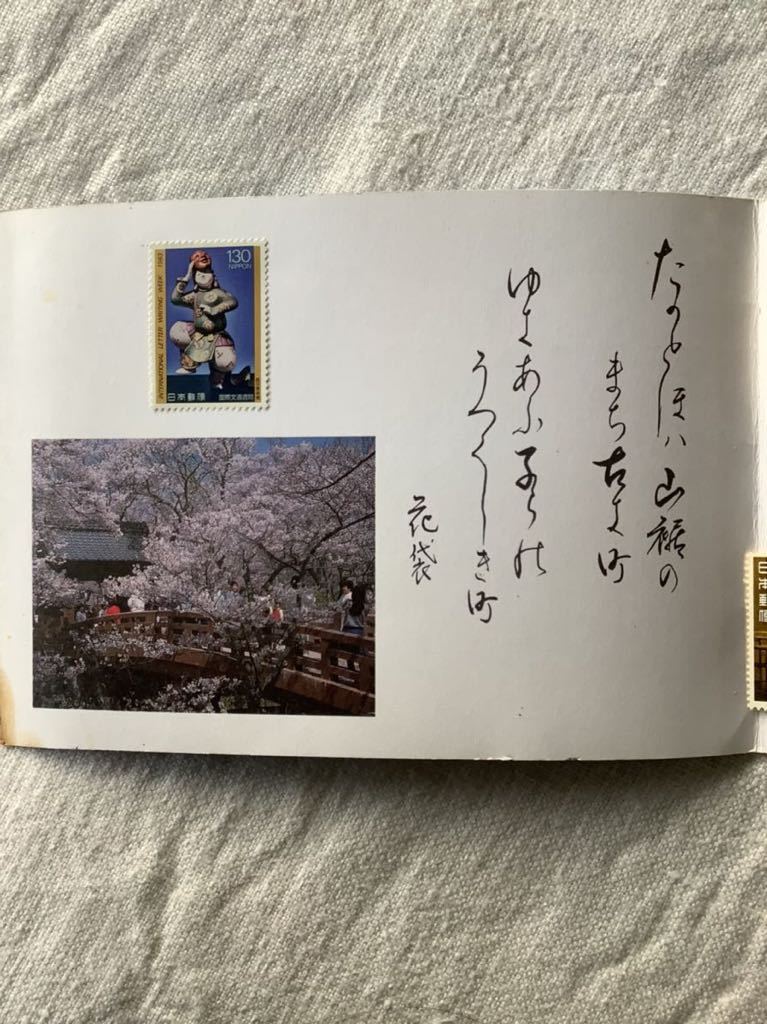 たかとほハ山裾の
まち古き町
ゆきあふ子らの
うつくしき町
花袋
130
NIPPON
INTERNATIONAL LETTER WRITING WEEK 1983
日本郵便 国際文通週間
日本郵便